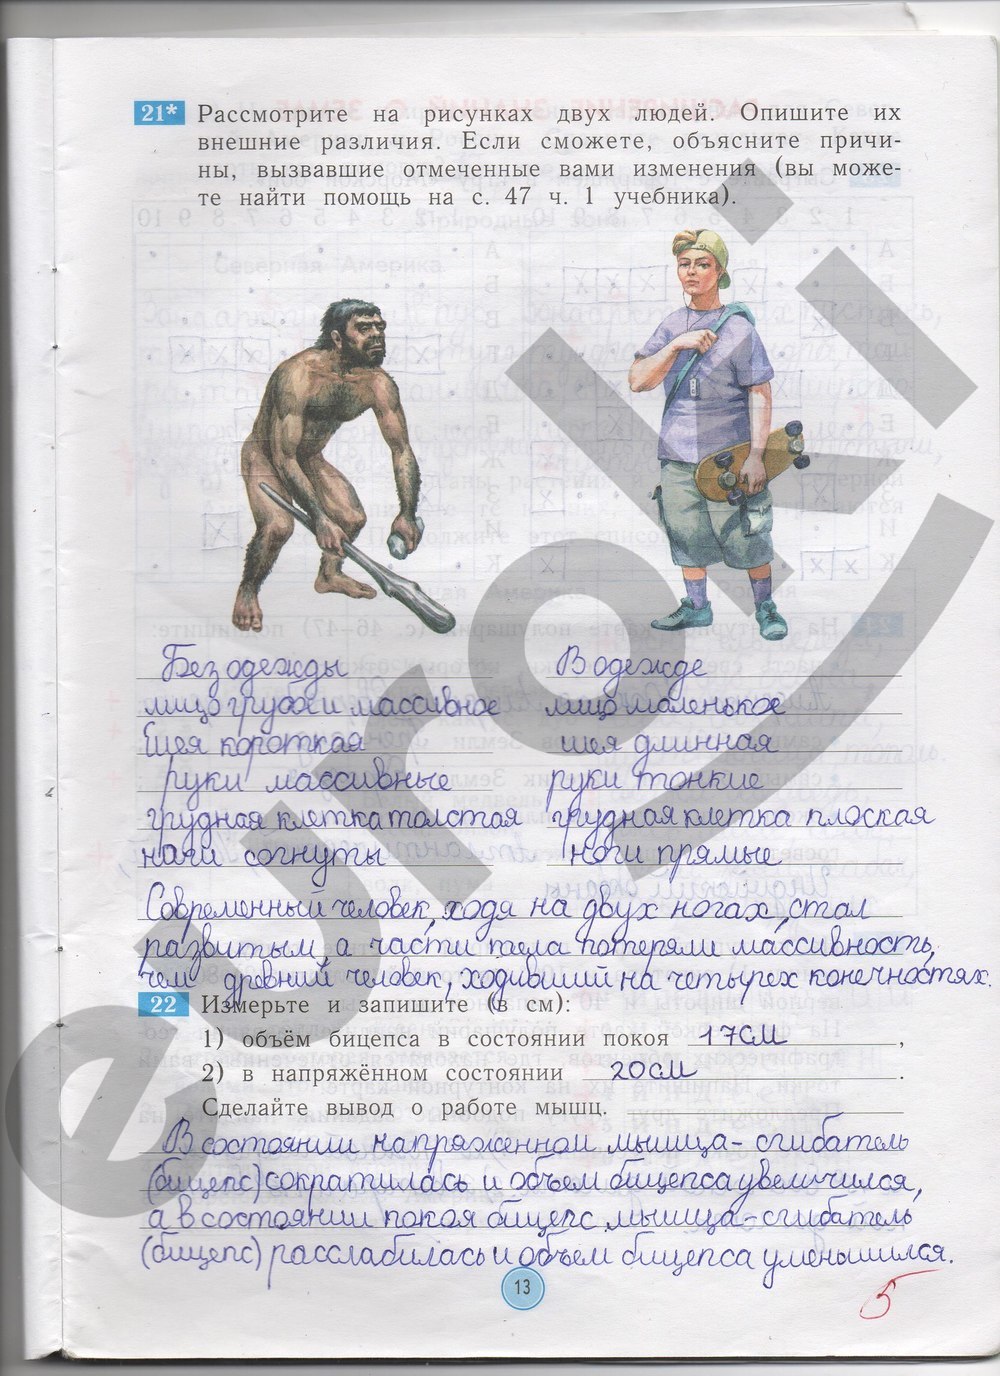 21* Рассмотрите на рисунках двух людей. Опишите их
внешние различия. Если сможете, объясните причи-
ны, вызвавшие отмеченные вами изменения (вы може-
те найти помощь на с. 47 ч. 1 учебника).
Без одежды
В одежде
лицо грубое и массивное
лицо маленькое
Шея короткая
шея длинная
руки массивные
руки тонкие
грудная клетка толстая
грудная клетка плоская
ноги согнуты
ноги прямые
Современный человек, ходя на двух ногах, стал
развитым, а части тела потеряли массивность,
чем древний человек, ходивший на четырех конечностях.
22 Измерьте и запишите (в см):
1) объём бицепса в состоянии покоя 17см,
2) в напряжённом состоянии 20см.
Сделайте вывод о работе мышц.
В состоянии напряженном мышца-сгибатель
(бицепс) сократилась и объем бицепса увеличился,
а в состоянии покоя бицепс мышца-сгибатель
(бицепс) расслабилась и объем бицепса уменьшился.
13
5
euroki